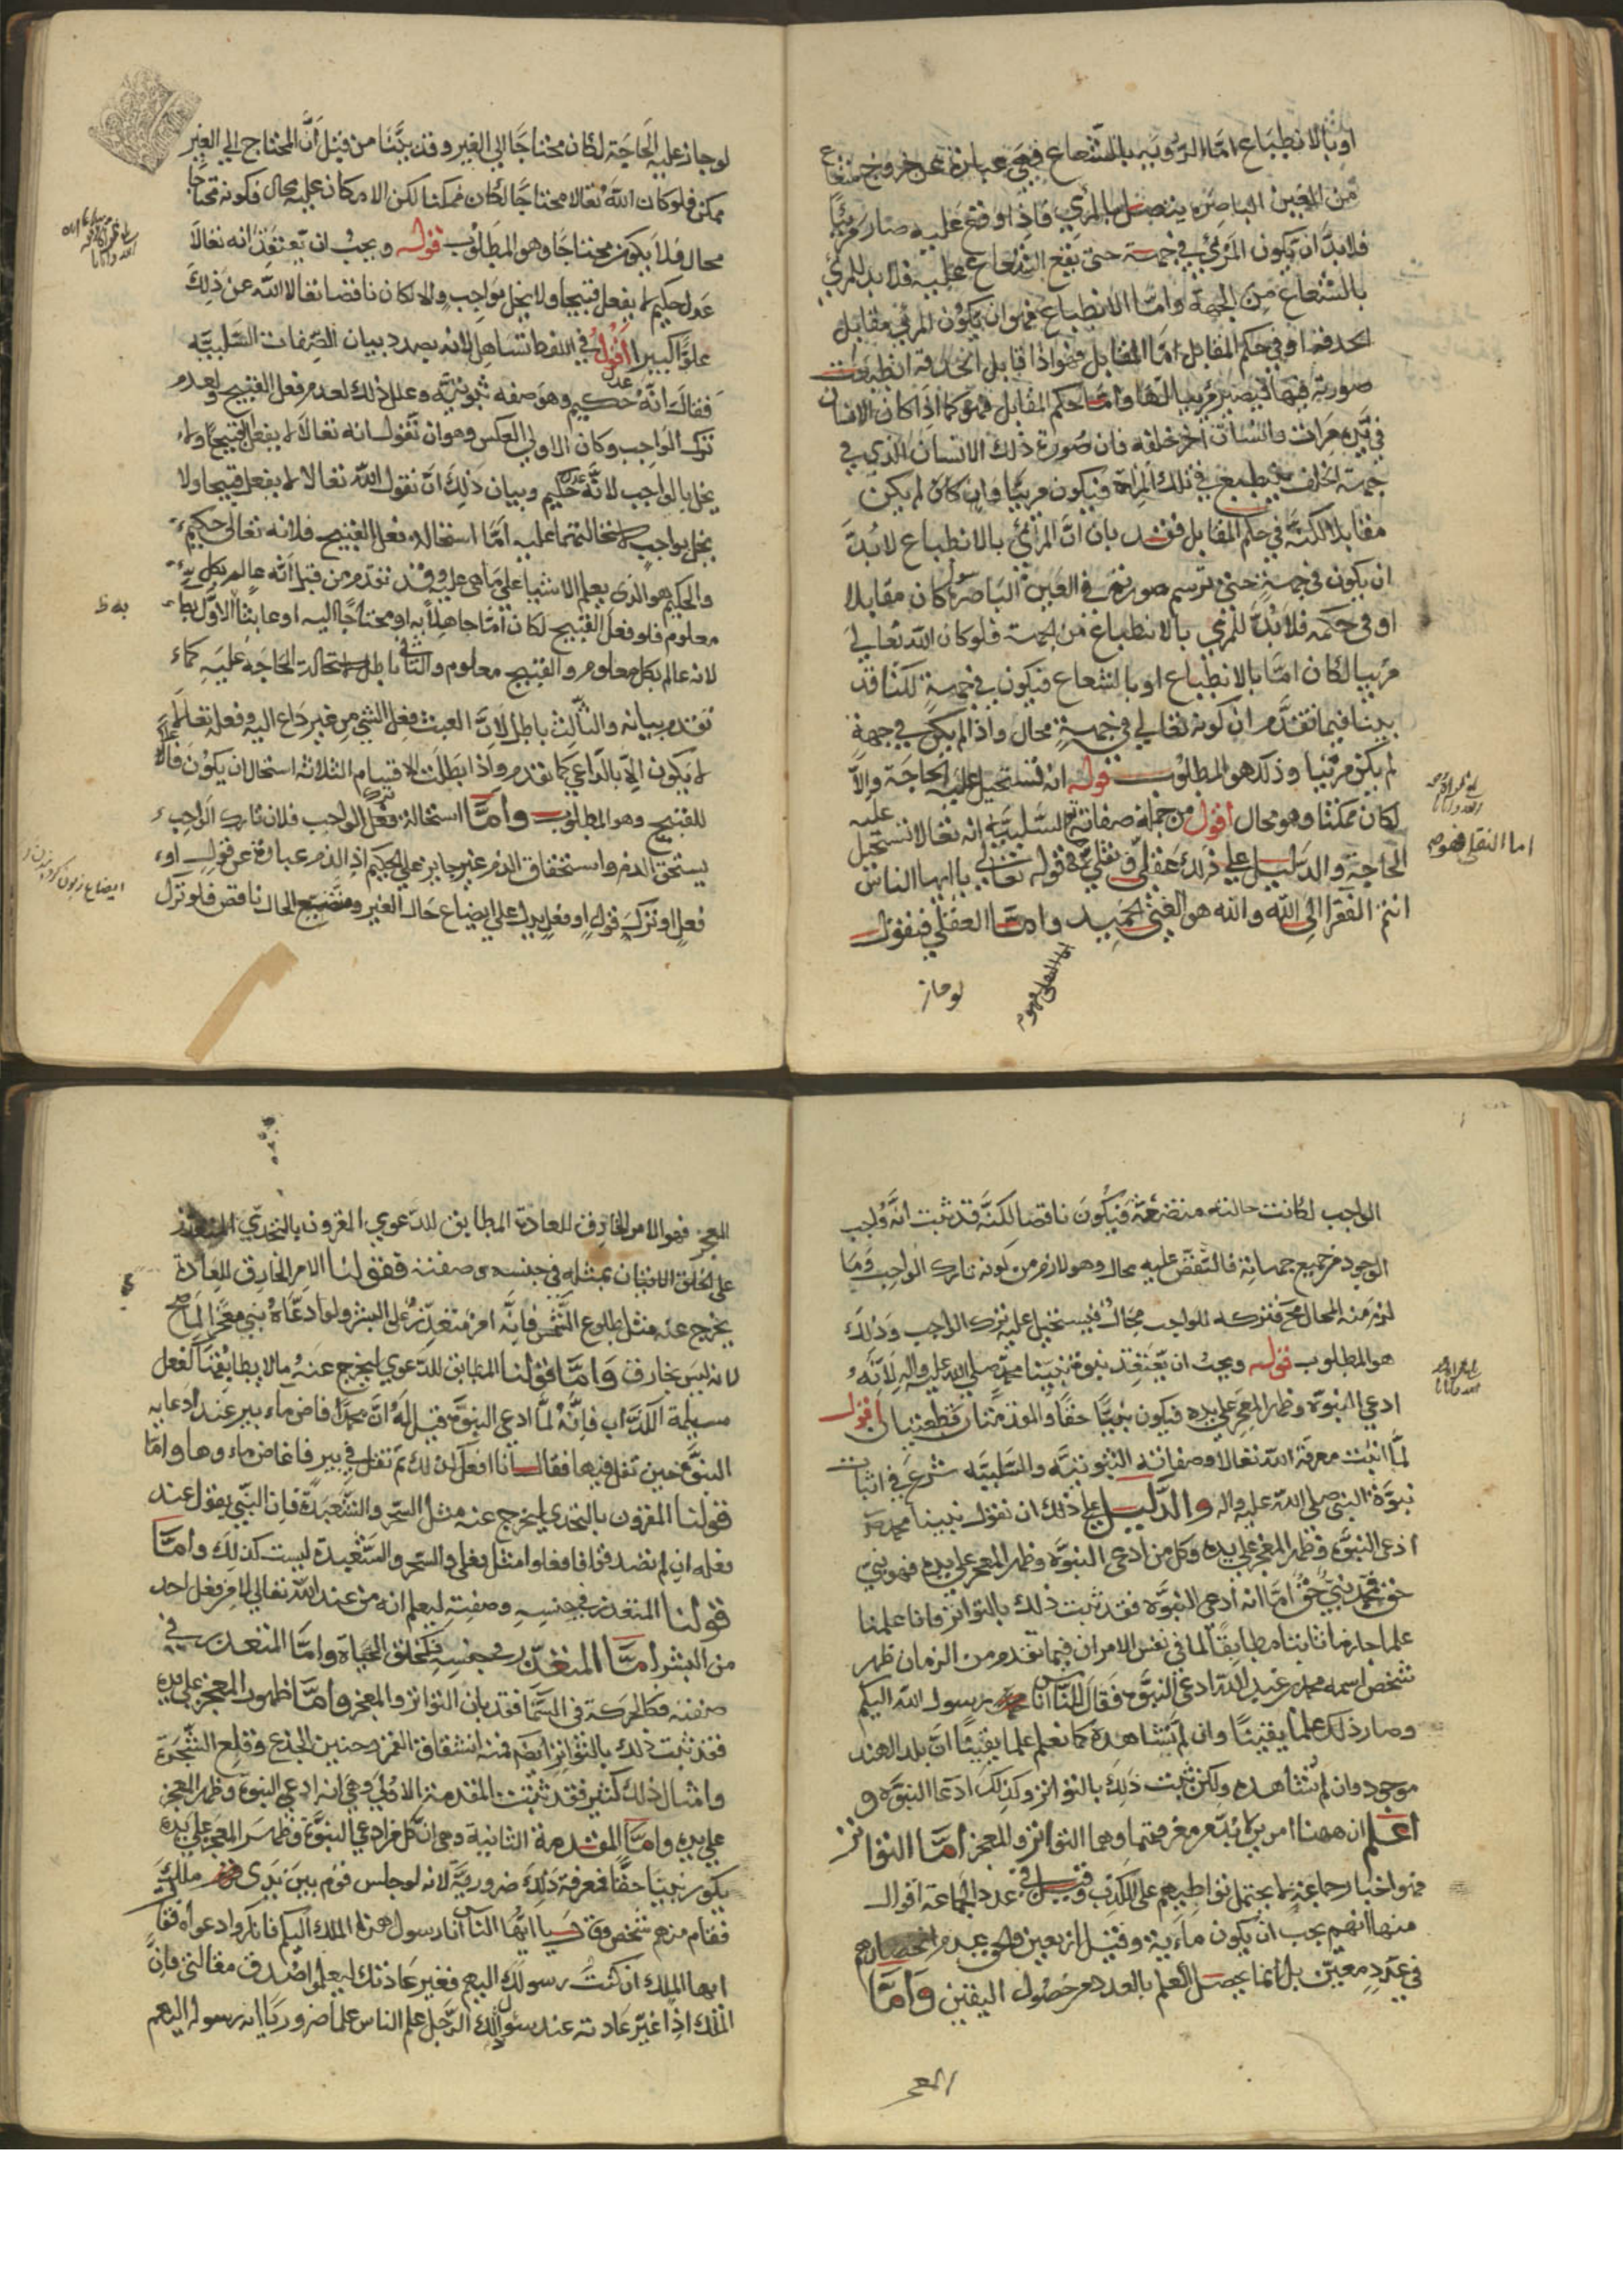 او بالانطباع اما الرؤيه بالشعاع فهي عبارة عن خروج شعاع
من العين الباصره يتصل بالمرئي فاذا وقع عليه صار مرئيا
فلا بد ان يكون المرئي في جهة حتى يقع الشعاع عليه فلا بد للمرئي
بالشعاع من الجهة واما الانطباع فهو ان يكون المرئي مقابل
الحدقه او في حكم المقابل اما المقابل فهو اذا قابل الحدقه انطبعت
صورته فيها فيصير مرئيا لها واما حكم المقابل فهو كما اذا كان الانسان
في يده مرات وانسان اخر خلفه فان صورة ذلك الانسان الذي في
جهة الخلف ينطبع في تلك المراة فيكون مرئيا وان كان لم يكن
مقابلا لكنه في حكم المقابل فقد بان ان المرئي بالانطباع لا بد
ان يكون في جهة حتى ترسم صورته في العين الباصرة سوا كان مقابلا
او في حكمه فلا بد للمرئي بالانطباع من الجهة فلو كان الله تعالى
مرئيا لكان اما بالانطباع او بالشعاع فيكون في جهة لكنا قد
بينا فيما تقدم ان كونه تعالى في جهة محال واذا لم يكن في جهة
لم يكن مرئيا وذلك هو المطلوب قوله انه تستحيل عليه الحاجة والا
لكان ممكنا وهو محال اقول من جملة صفاته السلبية انه تعالا تستحيل عليه
الحاجة والدليل على ذلك عقلي ونقلي قوله تعالى يا ايها الناس
اما النقلي فهو
انتم الفقرا الى الله والله هو الغني الحميد واما العقلي فنقول
اما النقلي فهو
لو جاز
لو جاز عليه الحاجة لكان محتاجا الى الغير وقد بينا من قبل ان المحتاج الى الغير
ممكن فلو كان الله تعالا محتاجا لكان ممكنا لكن الامكان عليه محال فكونه محتاجا
محال فلا يكون محتاجا وهو المطلوب قوله ويجب ان يعتقد انه تعالا
عدل حكيم لا يفعل قبيحا ولا يخل بواجب والا لكان ناقصا تعالا الله عن ذلك
علوا كبيرا اقول في اللفظ تساهل لانه بصدد بيان الصفات السلبيه
فقالت انه عدل حكيم وهو صفه ثبوتية وعلل ذلك لعدم فعل القبيح ولعدم
ترك الواجب وكان الاولى العكس وهو ان تقول انه تعالا لا يفعل القبيح ولا
يخل بالواجب لانه عدل حكيم وبيان ذلك ان نقول الله تعالا لا يفعل قبيحا ولا
يخل بواجب لاستحالتهما عليه اما استحاله فعل القبيح فلانه تعالى حكيم
والحكيم هو الذي يعلم الاشيا على ما هي عليه وقد تقدم من قبل انه عالم بكل
معلوم فلو فعل القبيح لكان اما جاهلا به او محتاجا اليه او عابثا الاول باطل
به ظ
لانه عالم بكل معلوم والقبيح معلوم والثاني باطل لاستحالة الحاجة عليه كما
تقدم بيانه والثالث باطل لان العبث فعل الشي من غير داع اليه وفعله تعالا
لا يكون الا بالداعي كما تقدم واذا بطلت الاقسام الثلاثه استحال ان يكون فاعلا
للقبيح وهو المطلوب واما استحالة ترك فعل الواجب فلان تارك الواجب
يستحق الذم واستحقاق الذم غير جايز على الحكيم اذ الذم عبارة عن قول او
فعل او ترك قول او فعل يدل على ايضاع حال الغير ومتضيع الحال ناقص فلو ترك
الواجب لكانت حالته متضعة فيكون ناقصا لكنه قد ثبت انه واجب
الوجود من جميع جهاته فالنقص عليه محال وهو لازم من كونه تارك الواجب وما
لزم منه المحال محال فتركه للواجب محال فيستحيل عليه ترك الواجب وذلك
هو المطلوب قوله ويجب ان يعتقد نبوة نبينا محمد صلى الله عليه واله لانه
ادعى النبوة وظهر المعجز على يده فيكون نبيا حقا والمقدمتان قطعيتان اقول
لما اثبت معرفة الله تعالا وصفاته الثبوتيه والسلبيه شرع في اثبات
نبوة النبي صلى الله عليه واله والدليل على ذلك ان نقول نبينا محمد ص
ادعى النبوة وظهر المعجز على يده وكل من ادعى النبوة وظهر المعجز على يده فهو نبي
حق فمحمد نبي حق اما انه ادعى النبوة فقد ثبت ذلك بالتواتر فانا علمنا
علما جازما ثابتا مطابقا لما في نفس الامر ان فيما تقدم من الزمان ظهر
شخص اسمه محمد بن عبد الله ادعى النبوة فقال للناس انا محمد رسول الله اليكم
وصار ذلك علما يقينا وان لم نشاهده كما نعلم علما يقينا ان بلد الهند
موجود وان لم نشاهده ولكن ثبت ذلك بالتواتر وكذلك ادعا النبوة و
اعلم ان ههنا امرين لا بد من معرفتهما وهما التواتر والمعجز اما التواتر
فهو اخبار جماعة لا يحتمل تواطيهم على الكذب وقيل في عدد الجماعة اقوال
منها انهم يجب ان يكون ماية وقيل اربعين والحق عدم انحصارهم
في عدد معين بل انما يحصل العلم بالعدد مع حصول اليقين واما
المعجز
المعجز فهو الامر الخارق للعادة المطابق للدعوي المقرون بالتحدي المتعذر
على الخلق الاتيان بمثله في جنسه وصفته فقولنا الامر الخارق للعادة
يخرج عنه مثل طلوع الشمس فانه امر متعذر على البشر ولو ادعاه نبي معجزا لما صح
لانه ليس بخارق واما قولنا المطابق للدعوي ليخرج عنه ما لا يطابقها كفعل
مسيلمة الكذاب فانه لما ادعى النبوة قيل له ان محمدا فاض ماء بير عند ادعايه
النبوة حين تفل فيها فقال انا افعل كذلك ثم تفل في بير فاغاض ماءوها واما
قولنا المقرون بالتحدي ليخرج عنه مثل السحر والشعبدة فان النبي يقول عند
فعله ان لم تصدقوا فافعلوا مثل فعلي والسحر والشعبدة ليست كذلك واما
قولنا المتعذر في جنسه وصفته ليعلم انه من عند الله تعالى لا من فعل احد
من البشر اما المتعذر في جنسه فكخلق الحياة واما المتعذر في
صفته فكالحركة في السما فقد بان التواتر والمعجز واما ظهور المعجز على يده
فقد ثبت ذلك بالتواتر ايضا فمنه انشقاق القمر وحنين الجذع وقلع الشجرة
وامثال ذلك كثير فقد ثبتت المقدمة الاولى وهي انه ادعى النبوة وظهر المعجز
على يده واما المقدمة الثانية وهي ان كل من ادعى النبوة وظهر المعجز على يده
يكون نبيا حقا فمعرفة ذلك ضرورية لانه لو جلس قوم بين يدى ملك
فقام منهم شخص وقال يا ايها الناس انا رسول هذا الملك اليكم فانكروا دعواه فقال
ايها الملك ان كنت رسولك اليهم فغير عادتك ليعلموا صدق مقالتي فان
الملك اذا غير عادته عند سؤال ذلك الرجل علم الناس علما ضروريا انه رسوله اليهم